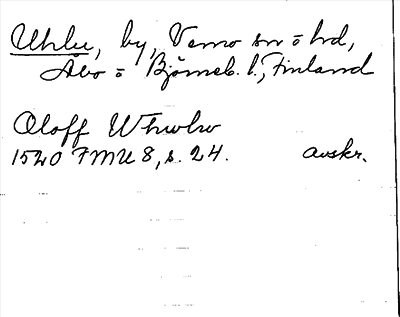 Uhlu, by, Vemo sn o hd,
Åbo o Björneb. l., Finland
Oloff Whwlw
1540 FMU 8, s. 24. avskr.